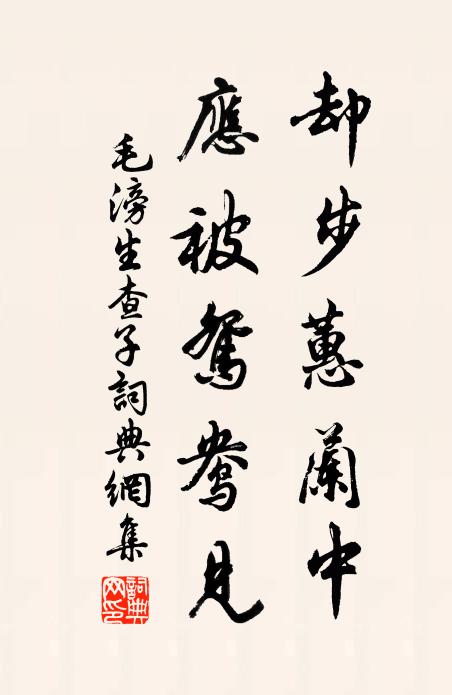 却步蕙蘭中
應被鴛鴦見
毛滂生查子詞典網集
詞典網印